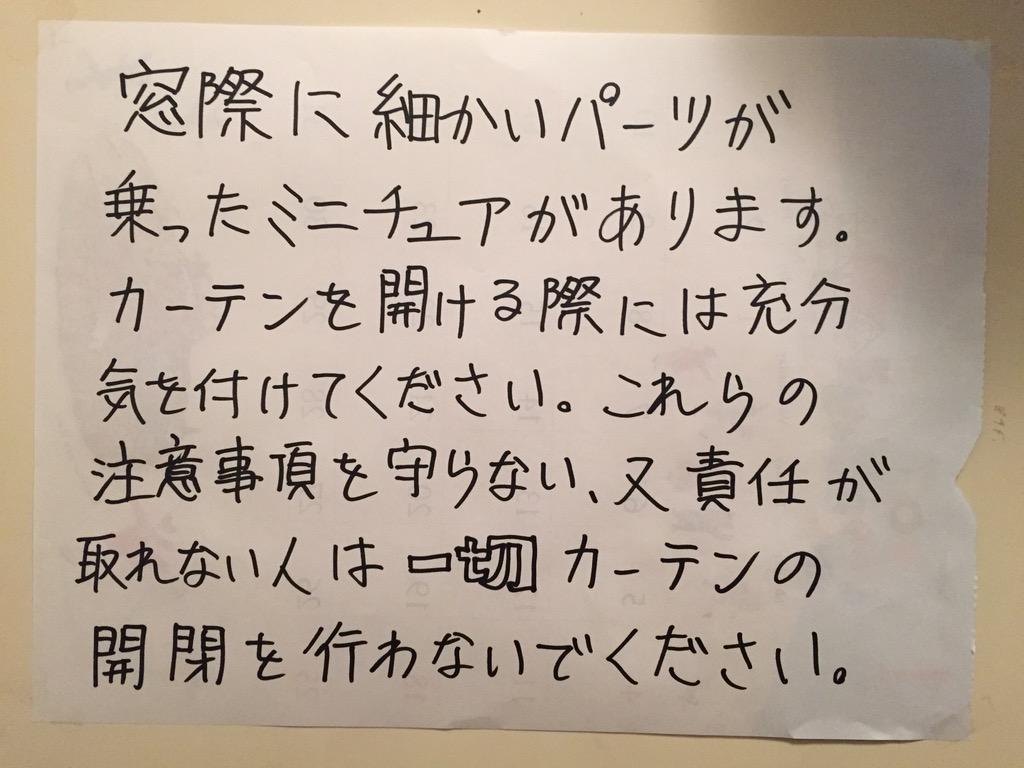 窓際に細かいパーツが
乗ったミニチュアがあります。
カーテンを開ける際には充分
気を付けてください。これらの
注意事項を守らない、又責任が
取れない人は一切カーテンの
開閉を行わないでください。